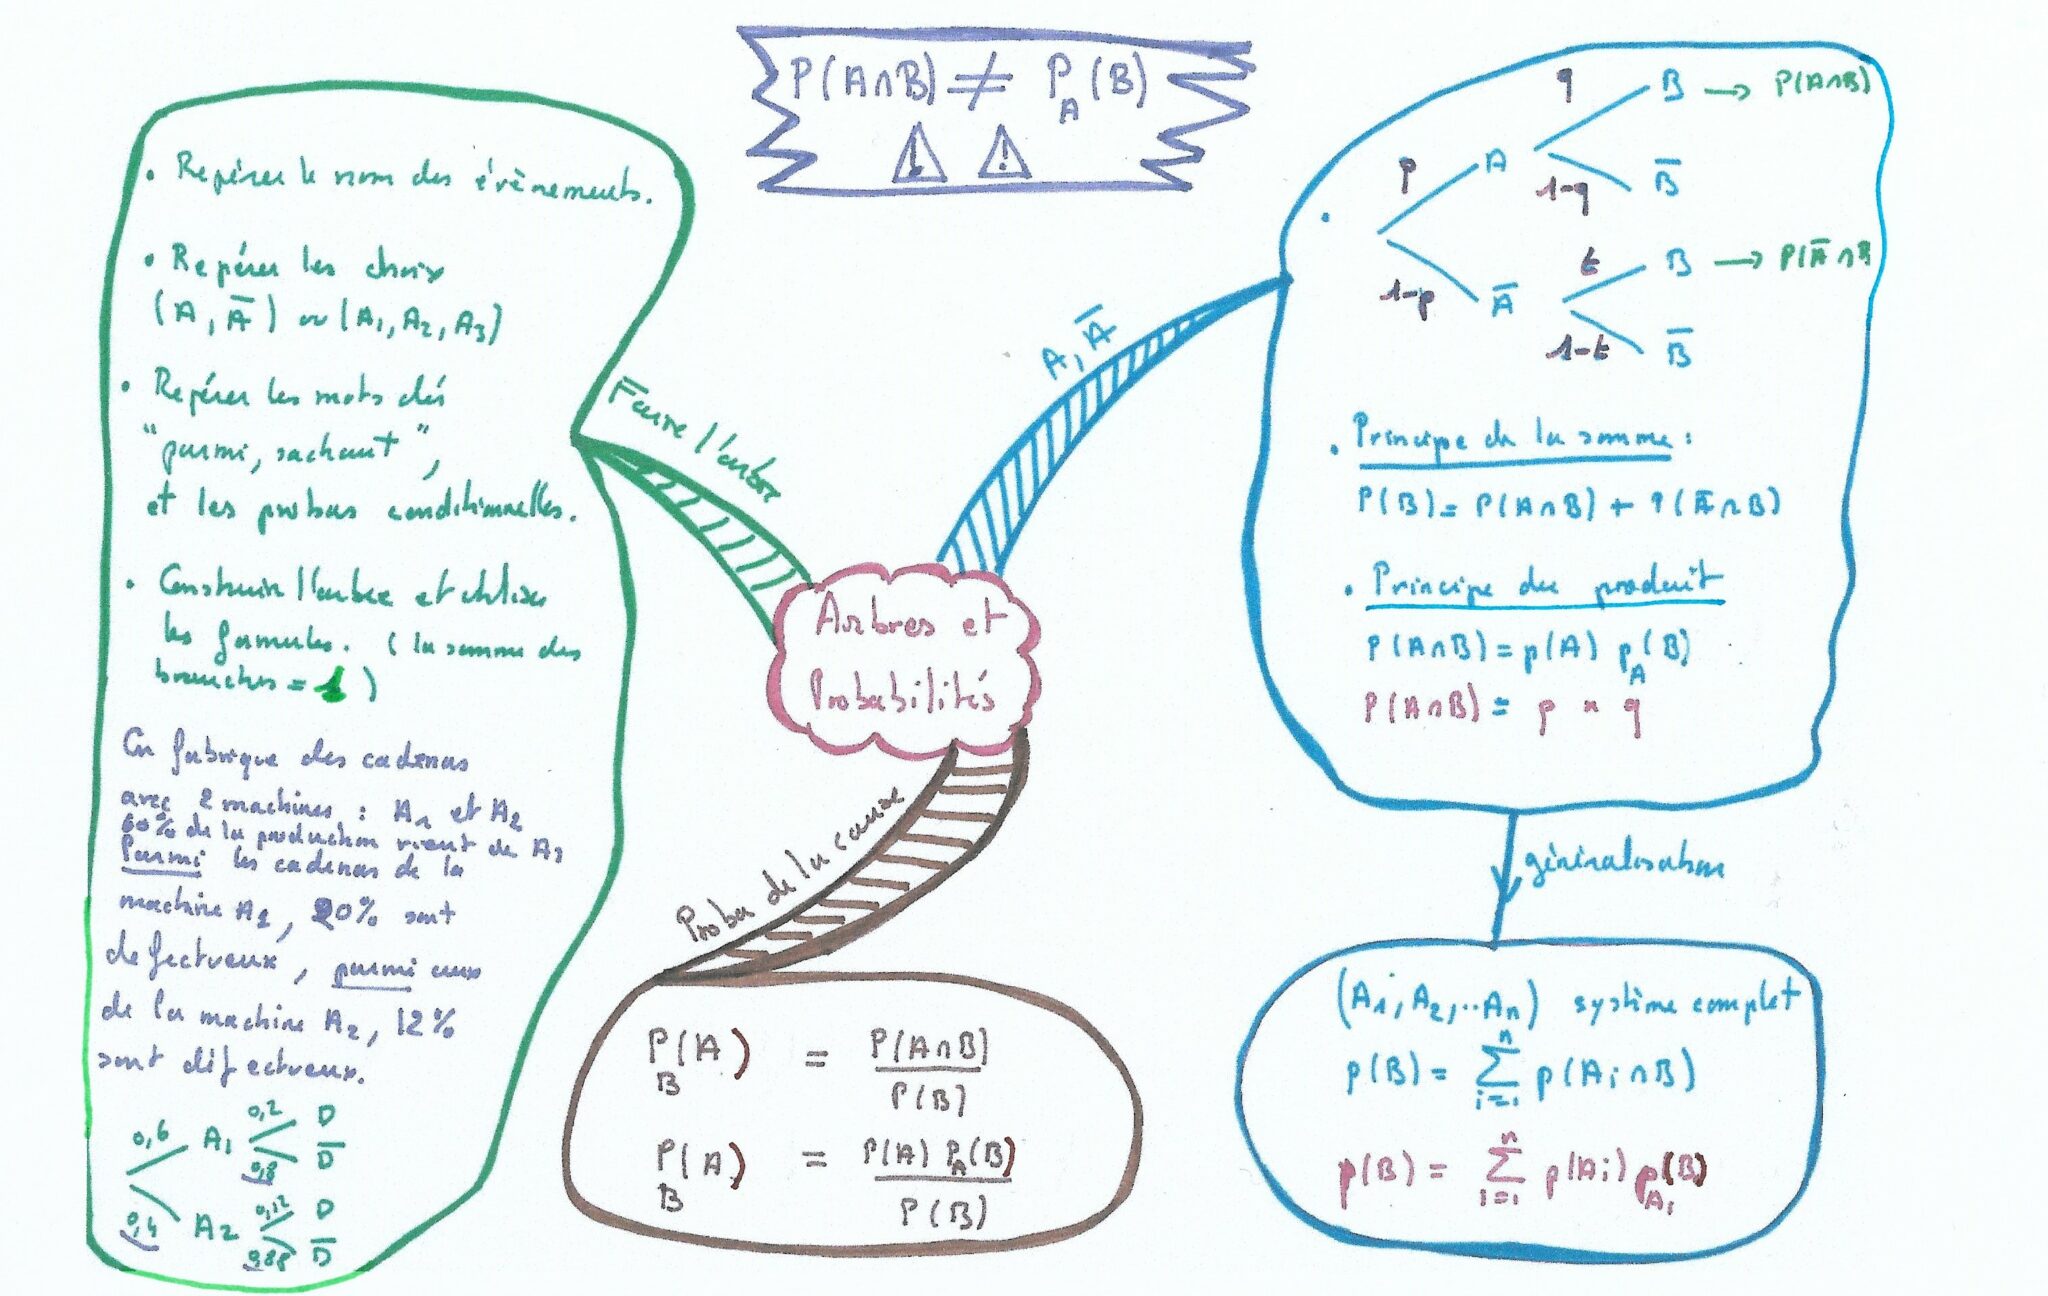 P(A∩B) ≠ P_A(B)
• Repérer le nom des évènements.
• Repérer les choix
(A, A̅) ou (A₁, A₂, A₃)
• Repérer les mots clés
"parmi, sachant",
et les probas conditionnelles.
• Construire l'arbre et utiliser
les formules. (la somme des
branches = 1)
On fabrique des cadenas
avec 2 machines : A₁ et A₂
60% de la production vient de A₁
Parmi les cadenas de la
machine A₁, 20% sont
defectueux, parmi ceux
de la machine A₂, 12%
sont défectueux.
0,6 A₁ 0,2 D
0,8 D̅
0,4 A₂ 0,12 D
0,88 D̅
Faire l'arbre
Arbres et
Probabilités
A, A̅
q B → P(A∩B)
p A 1-q B̅
t B → P(A̅∩B
1-p A̅ 1-t B̅
• Principe de la somme :
P(B) = P(A∩B) + P(A̅∩B)
• Principe du produit
P(A∩B) = p(A) p_A(B)
P(A∩B) = p × q
généralisation
(A₁, A₂, ..Aₙ) système complet
p(B) = ∑ⁿᵢ₌₁ p(Aᵢ∩B)
p(B) = ∑ⁿᵢ₌₁ p(Aᵢ) p_Aᵢ(B)
Proba de la cause
P_B(A) = P(A∩B) / P(B)
P_B(A) = P(A) P_A(B) / P(B)